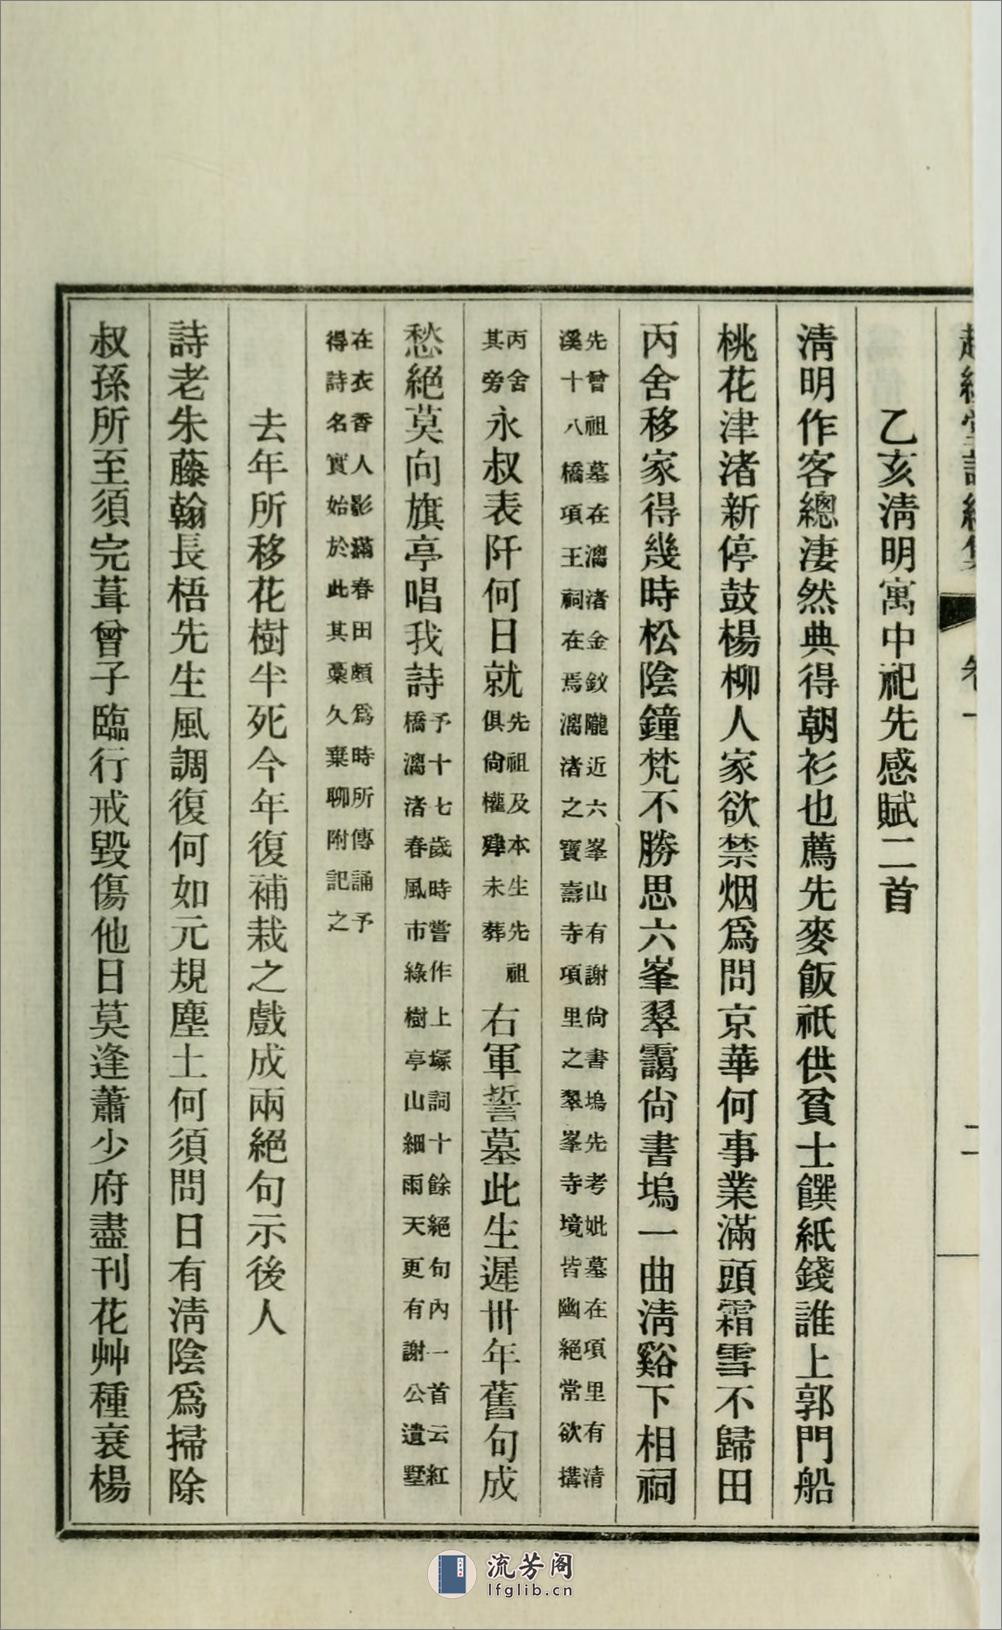 乙亥淸明寓中祀先感賦二首
淸明作客總淒然典得朝衫也薦先麥飯祇供貧士饌紙錢誰上郭門船
桃花津渚新停鼓楊柳人家欲禁烟爲問京華何事業滿頭霜雪不歸田
丙舍移家得幾時松陰鐘梵不勝思六峯翠靄尙書塢一曲淸谿下相祠
先曾祖墓在漓渚金釵隴近六峯山有謝尙書塢先考妣墓在項里有清
溪十八橋項王祠在焉漓渚之寶壽寺項里之翠峯寺境皆幽絕常欲搆
丙舍
其旁
永叔表阡何日就
先祖及本生先祖
俱尙權殯未葬
右軍誓墓此生遲卅年舊句成
愁絕莫向旗亭唱我詩
予十七歲時嘗作上塚詞十餘絕句內一首云紅
橋漓渚春風市綠樹亭山細雨天更有謝公遺墅
在衣香人影滿春田頗爲時所傳誦予
得詩名實始於此其稾久棄聊附記之
去年所移花樹半死今年復補栽之戲成兩絕句示後人
詩老朱藤翰長梧先生風調復何如元規塵土何須問日有淸陰爲掃除
叔孫所至須完葺曾子臨行戒毀傷他日莫逢蕭少府盡刊花艸種衰楊
流芳阁
lfglib.cn